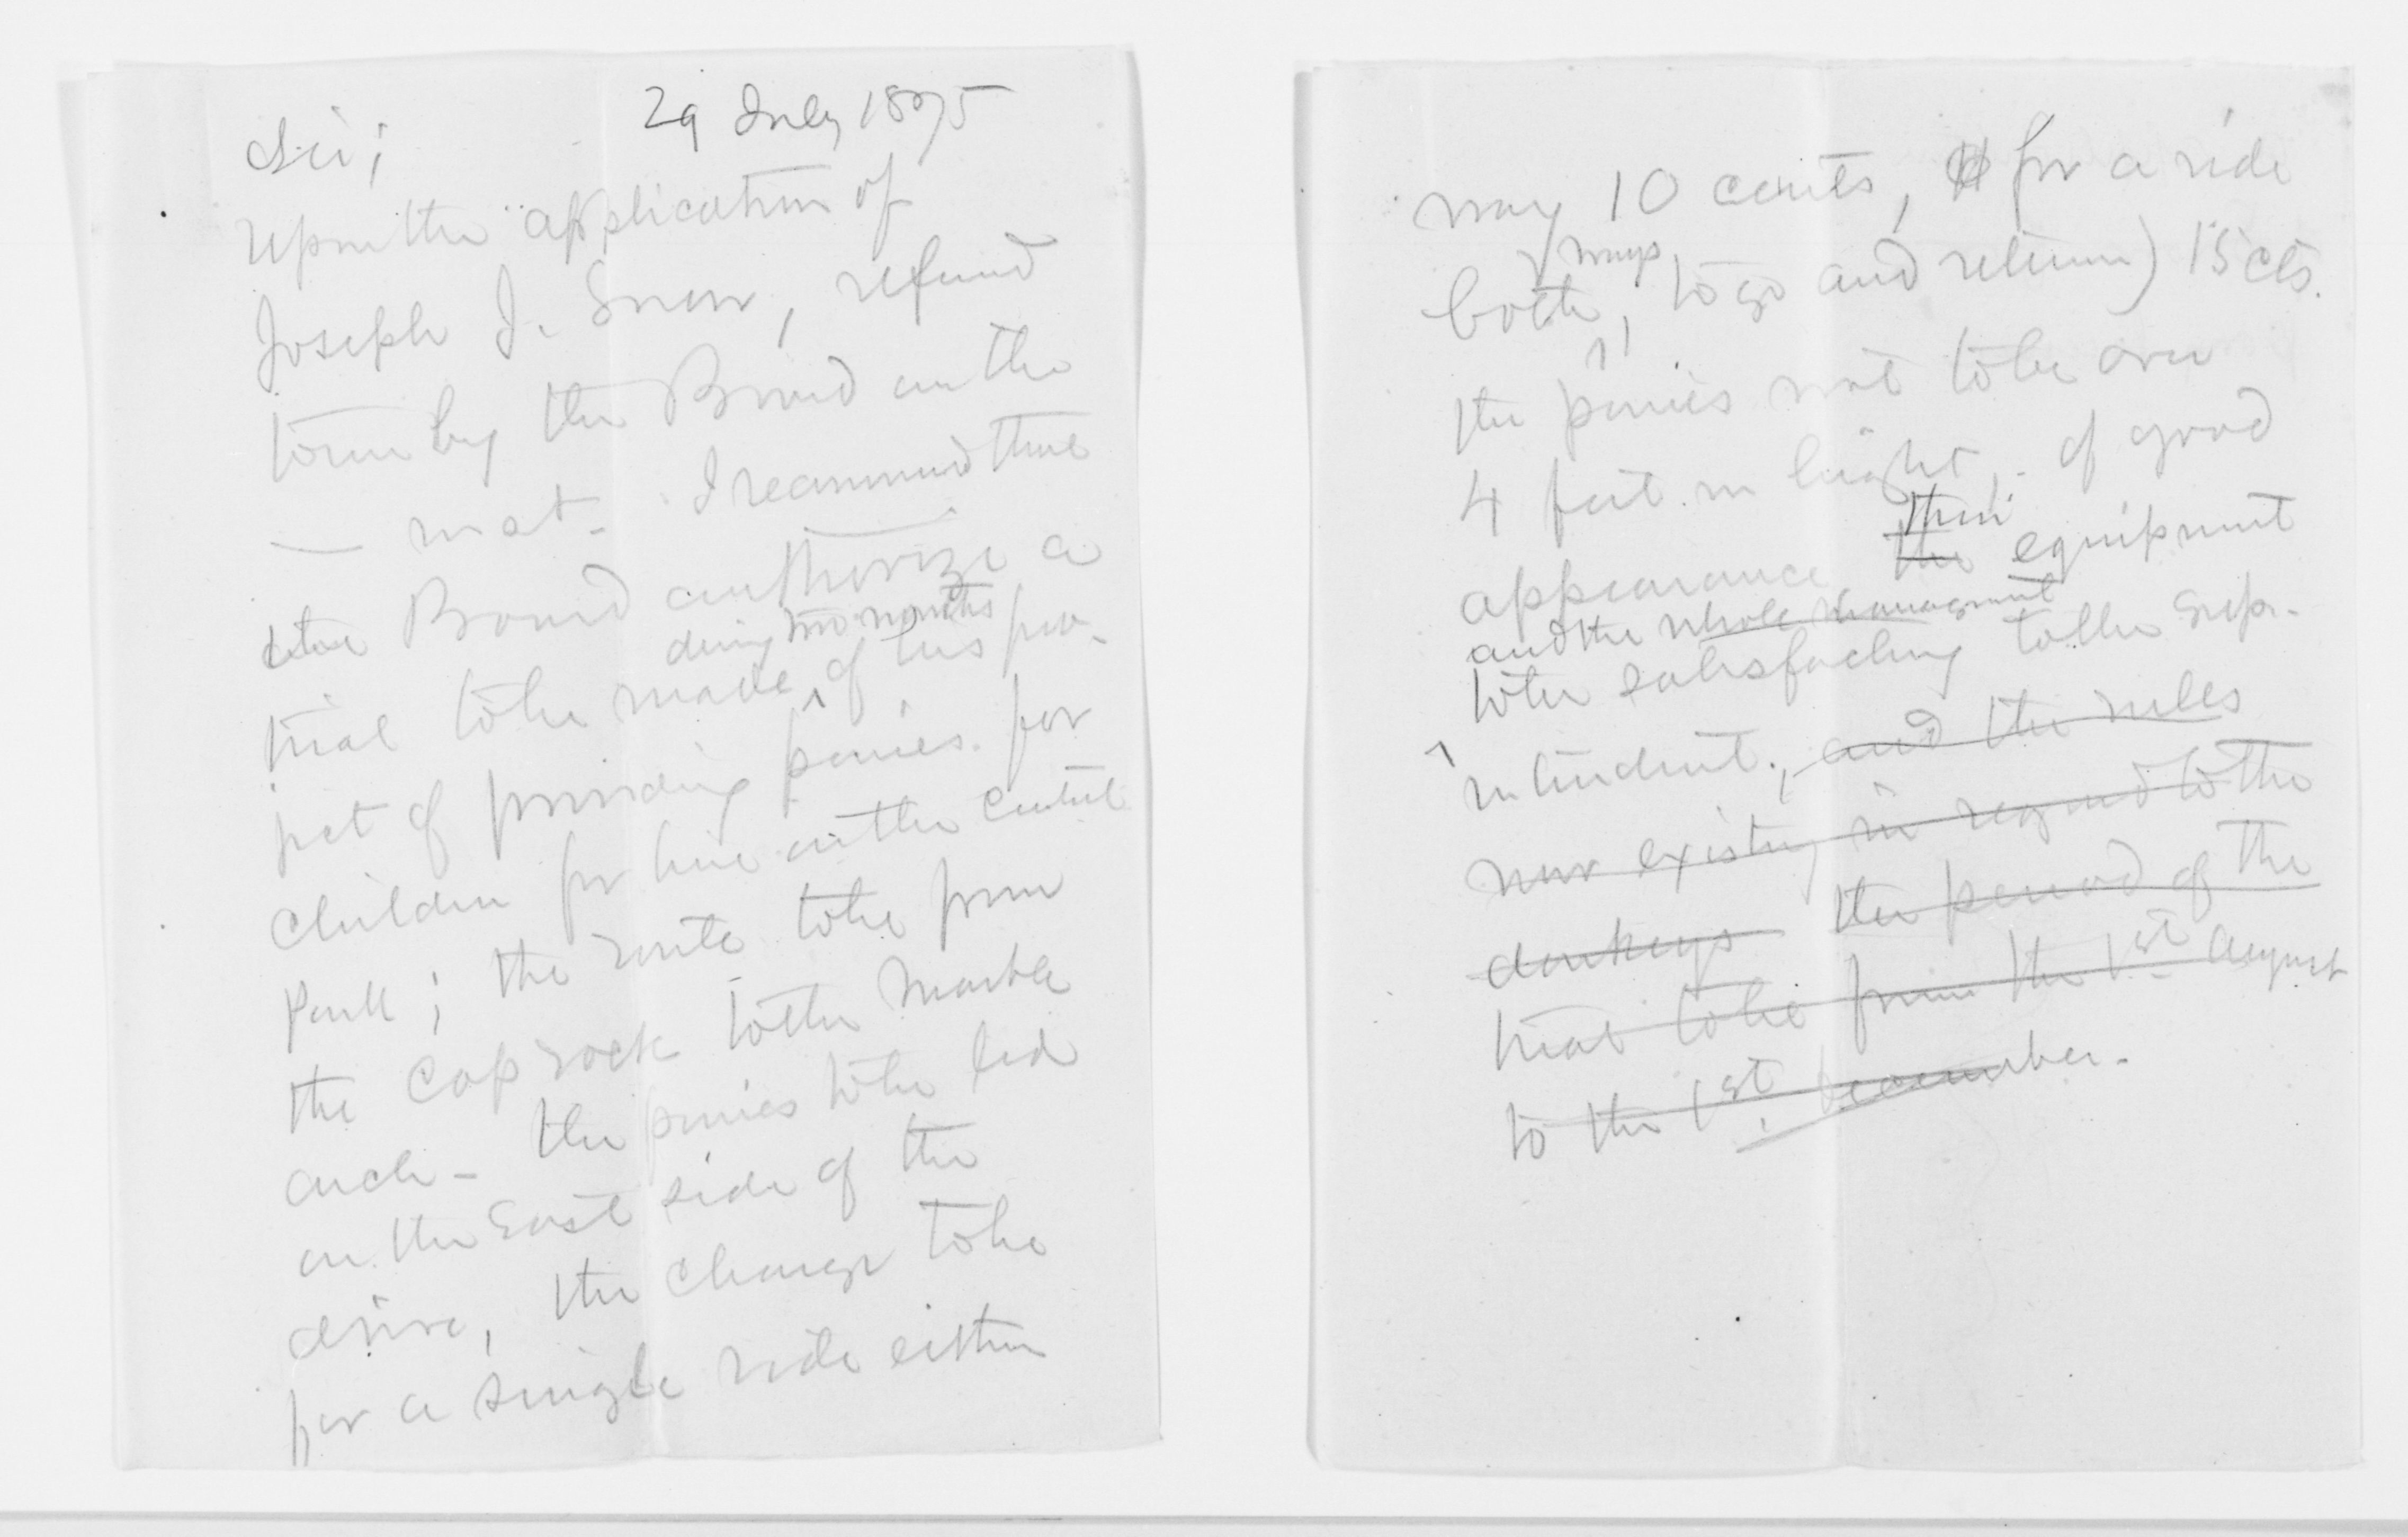 29 July 1875
Sir;
Upon the application of
Joseph J. Snow, referred
to me by the Board on the
— inst. I recommend that
the Board authorize a
during two months
trial to be made of his pro-
ject of providing ponies for
children for hire in the Central
Park; the route to be from
the Cop rock to the Marble
arch - the ponies to be led
on the East side of the
drive, the charge to be
for a single ride either
way 10 cents, for a ride
ways
both, to go and return) 15 cts.
the ponies not to be over
4 feet in height, of good
their
appearance the equipment
and the whole management
to be satisfactory to the Supr-
intendent, and the rules
now existing in regard to the
donkeys the period of the
trial to be from the 1st August
to the 1st December.